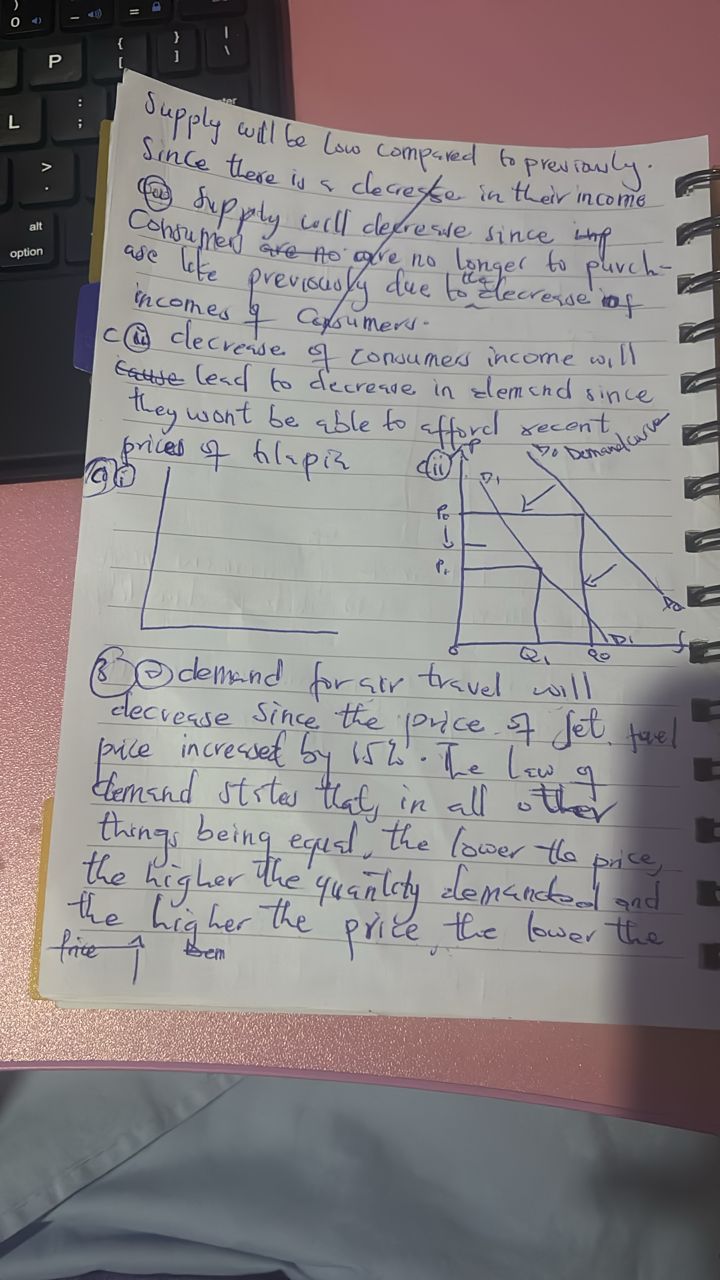 Supply will be low compared to previously.
Since there is a decrease in their income
Supply will decrease since
Consumers are no are no longer to purch-
ase like previously due to the decrease of
incomes of Consumers.
c (ii) decrease of consumers income will
cause lead to decrease in demand since
they wont be able to afford recent
prices of tilapia
c(i)
c(ii) P
D0 Demand curve
D1
P0
P1
D0
0 Q1 Q0 D1
3 a demand for air travel will
decrease since the price of Jet fuel
price increased by 15%. The law of
demand states that, in all other
things being equal, the lower the price,
the higher the quantity demanded and
the higher the price, the lower the
Price Dem
) 0 - =
P { [ } ] | \
L : ;
> .
alt
option